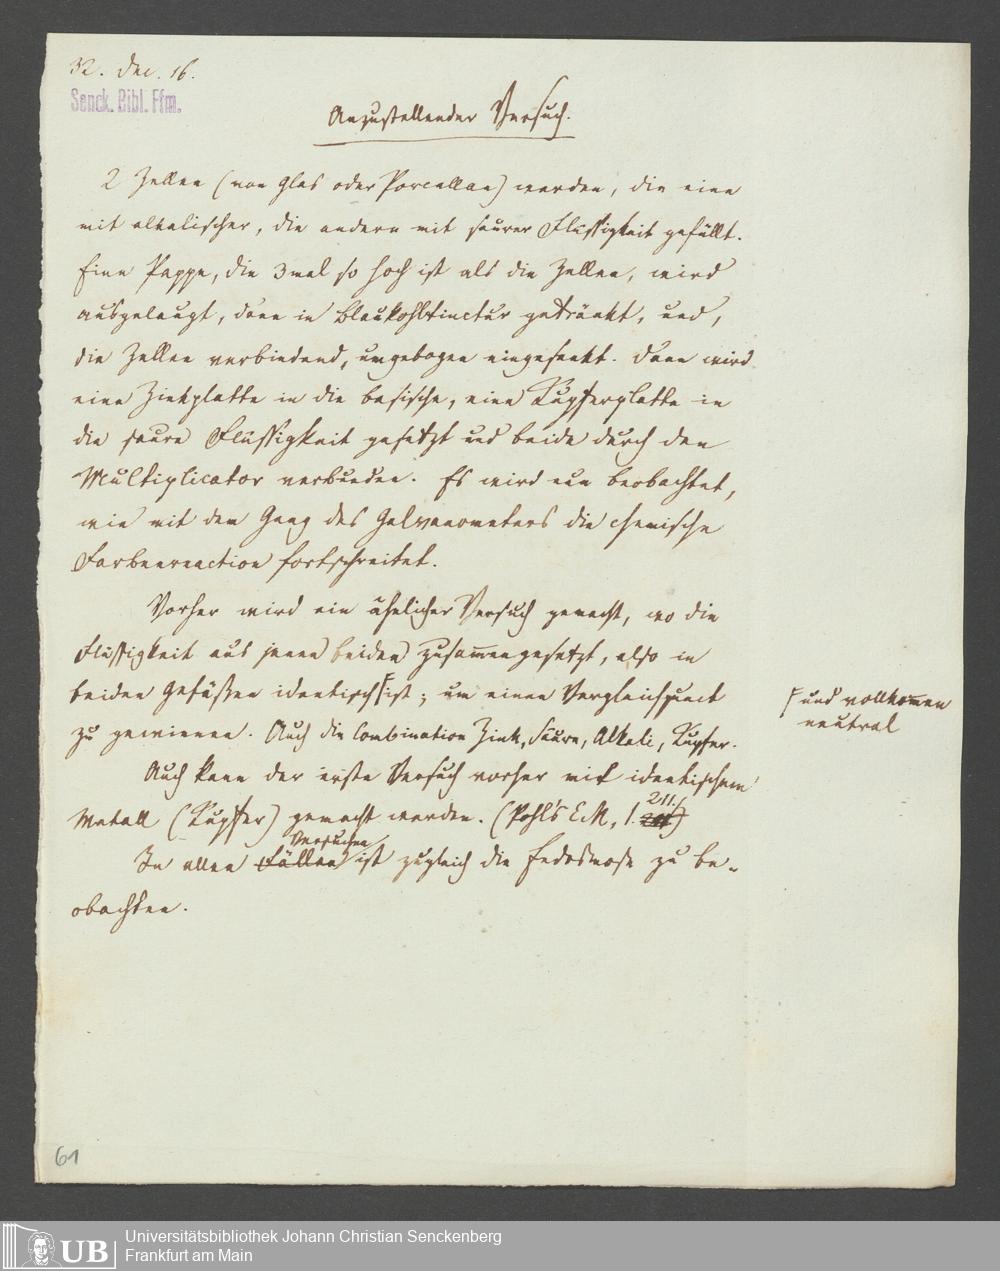 32. Dec. 16.
Senck. Bibl. Ffm.
Anzustellender Versuch.
2 Zellen (von Glas oder Porcellan) werden, die eine
mit alkalischer, die andern mit saurer Flüssigkeit gefüllt.
Eine Pappe, die 3mal so hoch ist als die Zellen, wird
ausgelaugt, dann in Blaukohltinctur getränkt, und,
die Zellen verbindend, umgebogen eingesenkt. Dann wird
eine Zinkplatte in die basische, eine Kupferplatte in
die saure Flüssigkeit gesetzt und beide durch den
Multiplicator verbunden. Es wird nun beobachtet,
wie mit dem Gang des Galvanometers die chemische
Farbenreaction fortschreitet.
Vorher wird ein ähnlicher Versuch gemacht, wo die
Flüssigkeit aus jenen beiden zusammengesetzt, also in
beiden Gefäßen identisch ist; um einen Vergleichpunct
und vollkommen
neutral
zu gewinnen. Auch die Combination Zink, Säure, Alkali, Kupfer.
Auch kann der erste Versuch vorher mit identischem
Metall (Kupfer) gemacht werden. (Pohl's E.M, 1. 211.)
In allen Fällen Versuchen ist zugleich die Endosmose zu be-
obachten.
61
UB
Universitätsbibliothek Johann Christian Senckenberg
Frankfurt am Main